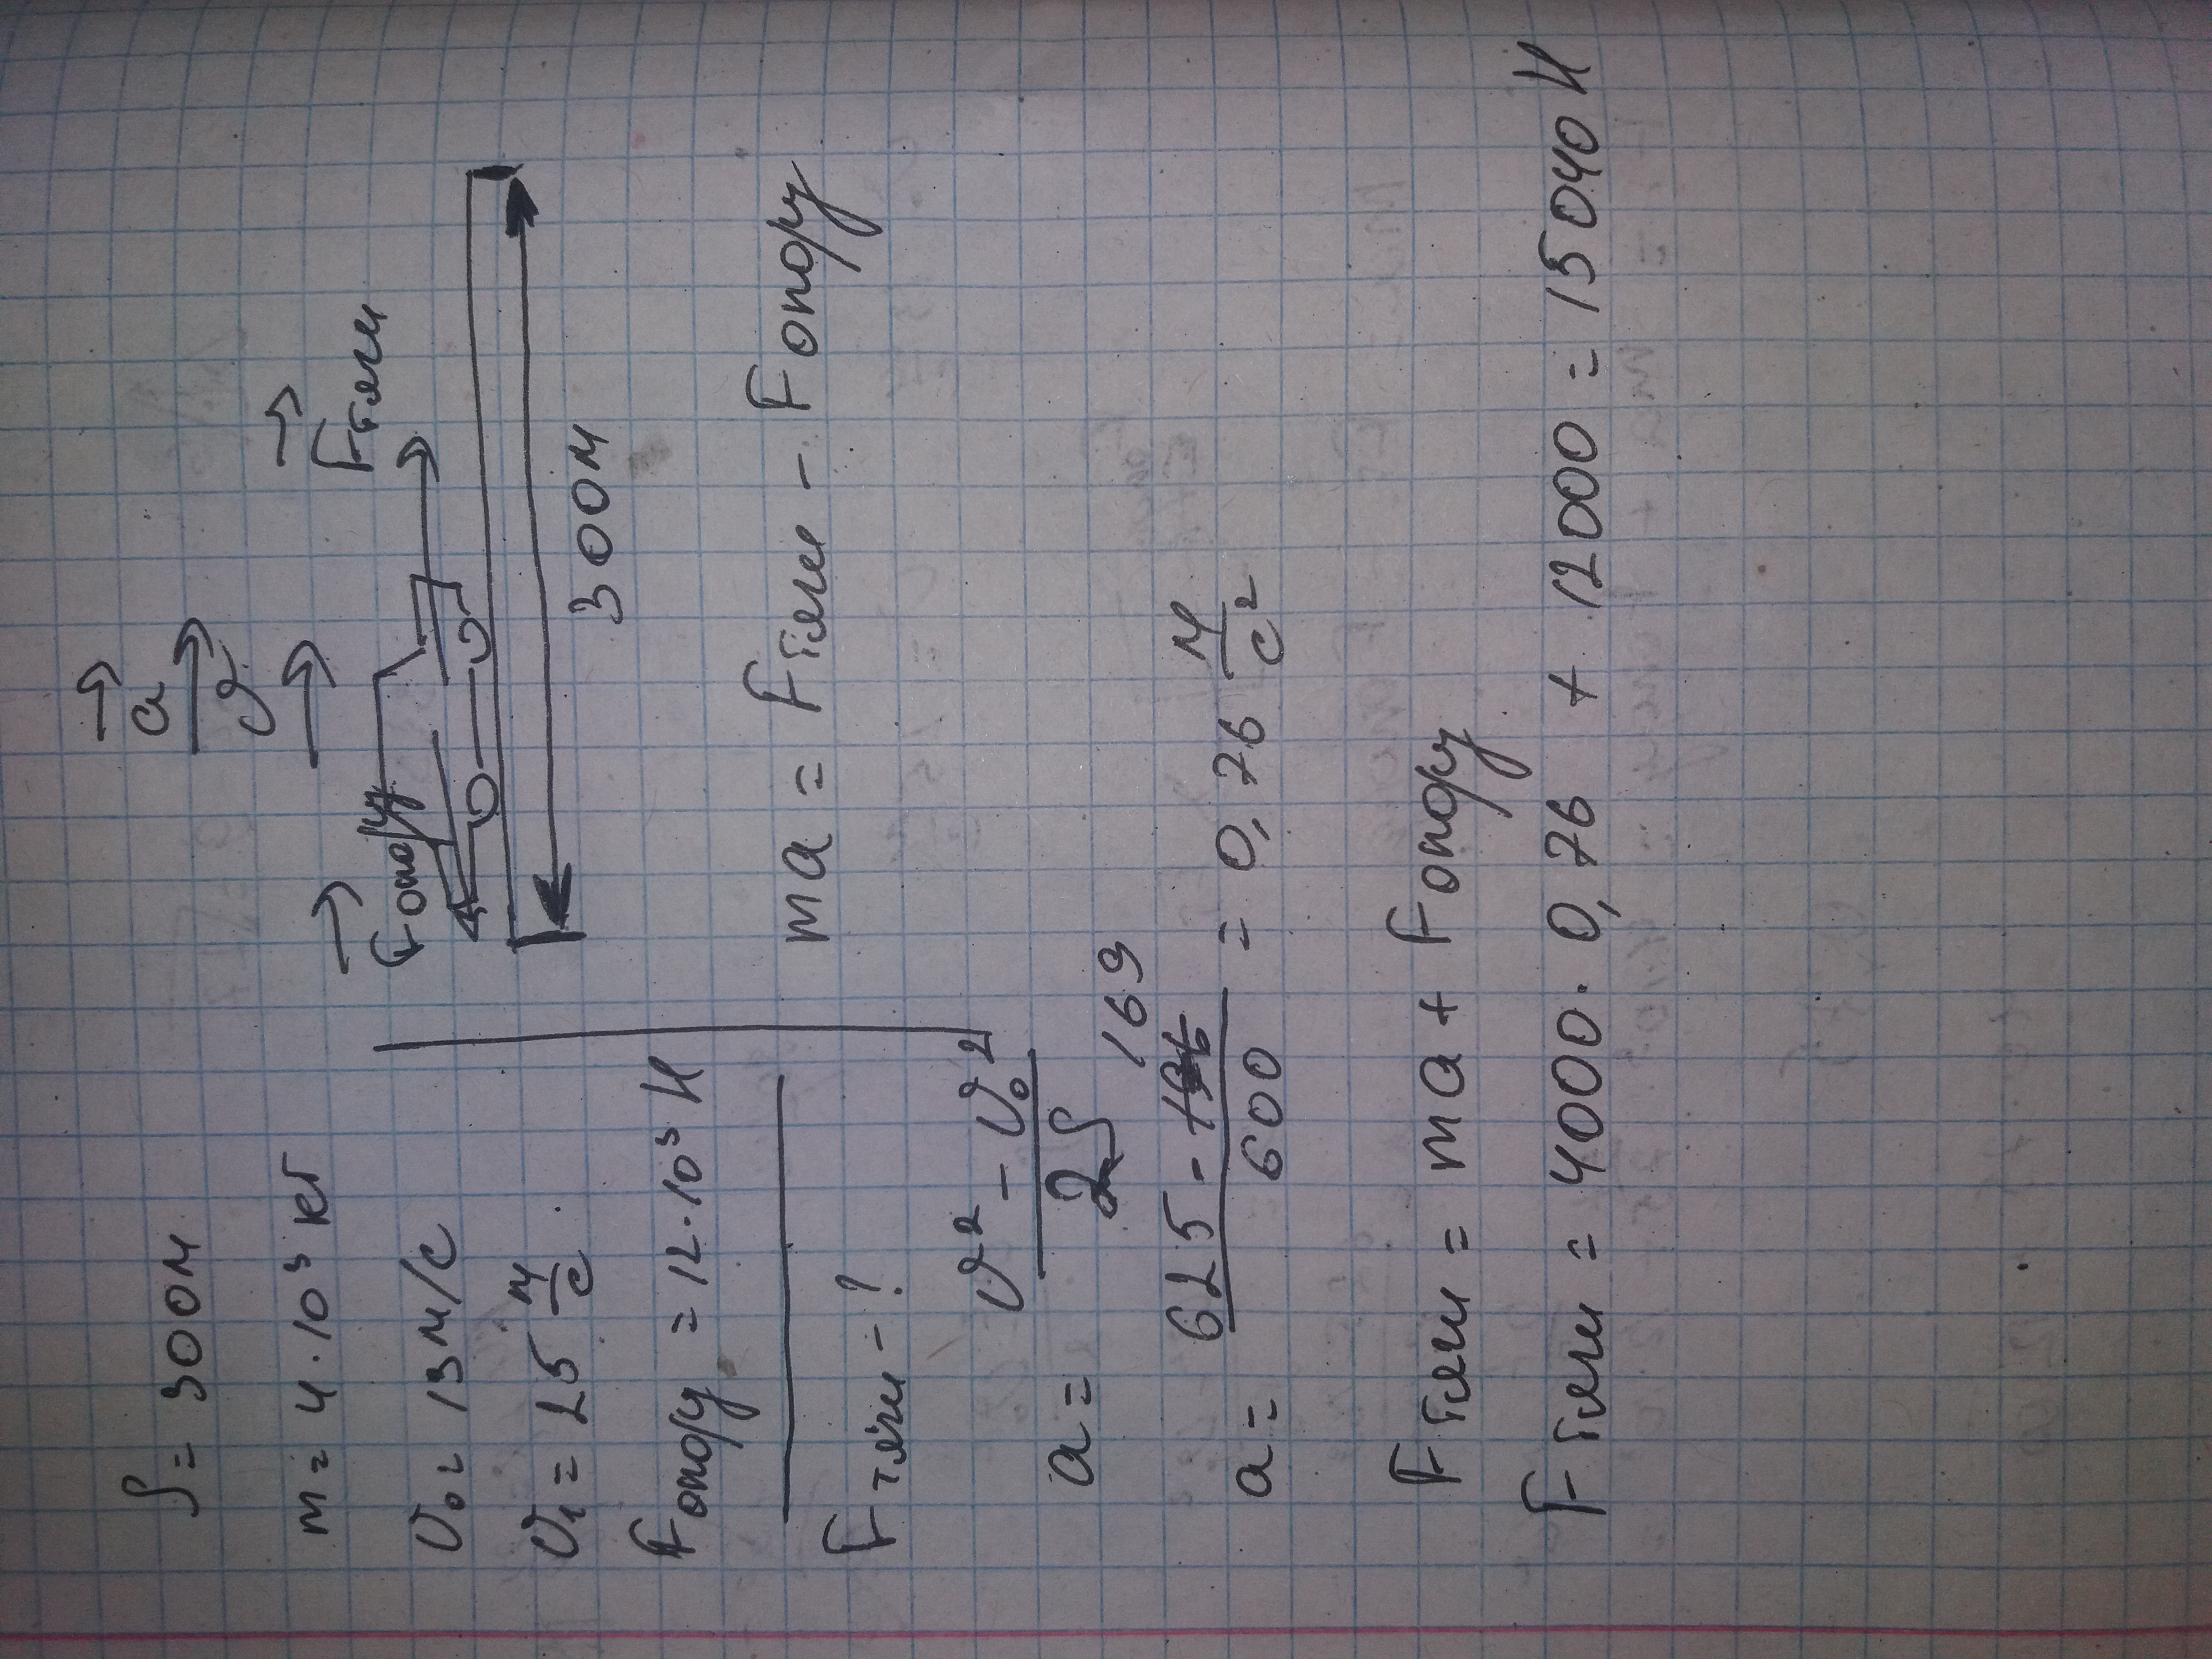 S = 300м
m = 4·10³ кг
υ₀ = 13 м/с
υ₁ = 25 м/с
Fопору = 12·10³ Н
Fтяги - ?
a
υ
Fопору
Fтяги
300м
ma = Fтяги - Fопору
a = (υ² - υ₀²) / 2S
a = (625 - 169) / 600 = 0,76 м/с²
Fтяги = ma + Fопору
Fтяги = 4000 · 0,76 + 12000 = 15040 Н